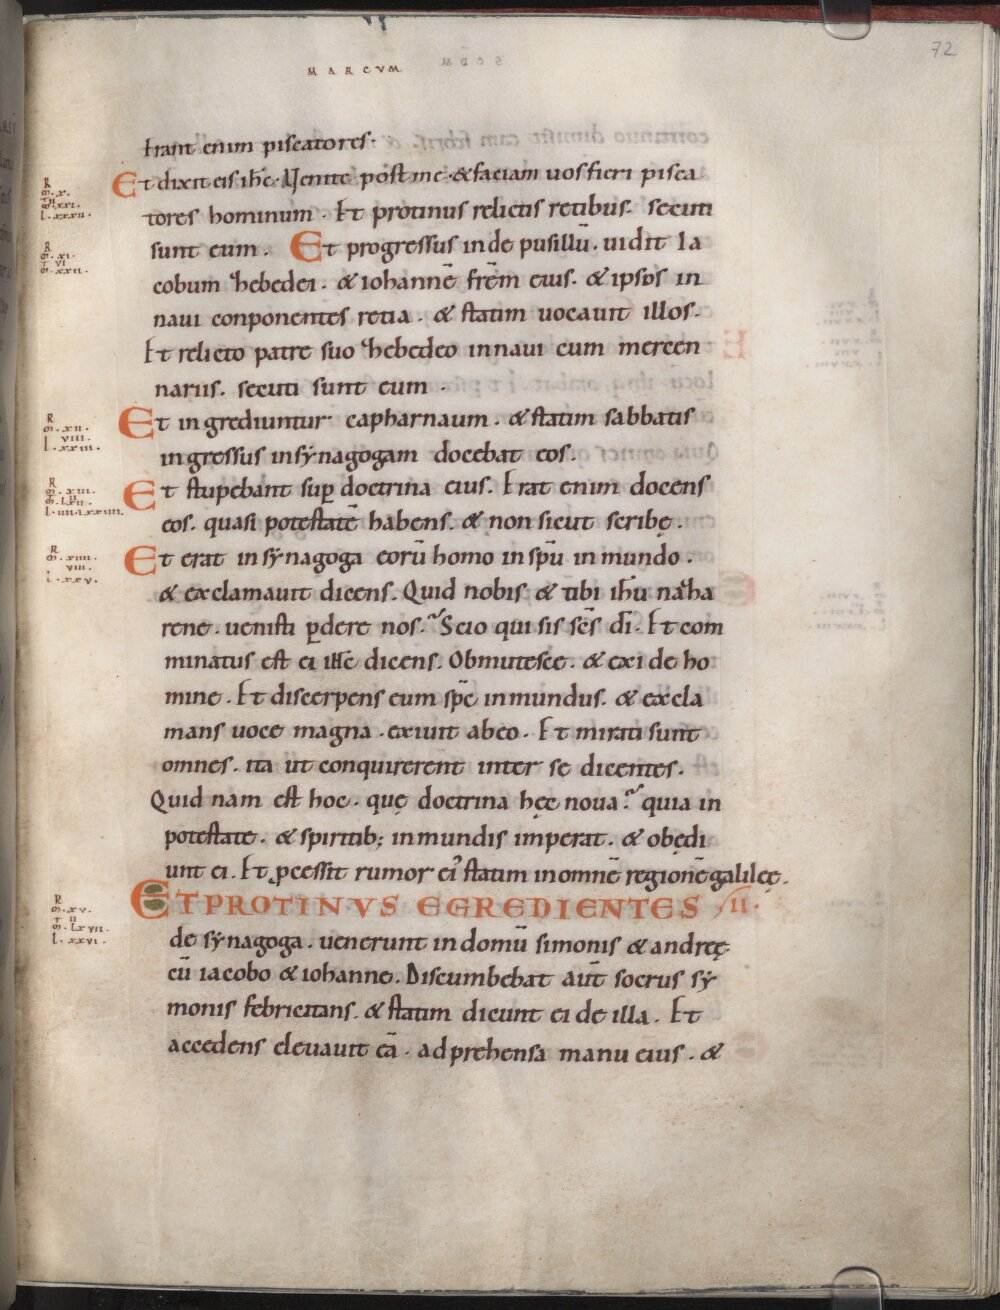 72
MARCVM
Erant enim piscatores.
Et dixit eis ihc. Uenite post me. & faciam uos fieri pisca
tores hominum. Et protinus relictis retibus. secuti
sunt eum. Et progressus inde pusillū. uidit Ia
cobum hebedei. & iohannē frēm eius. & ipsos in
naui conponentes retia. & statim uocauit illos.
Et relicto patre suo hebedeo in naui cum mercen
nariis. secuti sunt eum.
R
m. xii.
viii.
l. xxiii.
Et ingrediuntur capharnaum. & statim sabbatis
ingressus in synagogam docebat eos.
Et stupebant sup doctrina eius. Erat enim docens
eos. quasi potestatē habens. & non sicut scribę.
R
m. xiiii.
viii.
l. xxv.
Et erat in synagoga eorū homo in spū inmundo.
& exclamauit dicens. Quid nobis & tibi ihū naha
rene. uenisti pdere nos? Scio qui sis scs dī. Et com
minatus est ei ihc dicens. Obmutesce. & exi de ho
mine. Et discerpens eum spc inmundus. & excla
mans uoce magna. exiuit ab eo. Et mirati sunt
omnes. ita ut conquirerent inter se dicentes.
Quid nam est hoc. quę doctrina hęc noua? quia in
potestate. & spiritib; inmundis imperat. & obędi
unt ei. Et pcessit rumor ei' statim in omnē regionē galileę.
R
m. xv.
+ ii
m. lxvii.
l. xxvi.
ET PROTINVS EGREDIENTES II.
de synagoga. uenerunt in domū simonis & andreę
cū iacobo & iohanne. Discumbebat aūt socrus sy
monis febricitans. & statim dicunt ei de illa. Et
accedens eleuauit eā. adprehensa manu eius. &